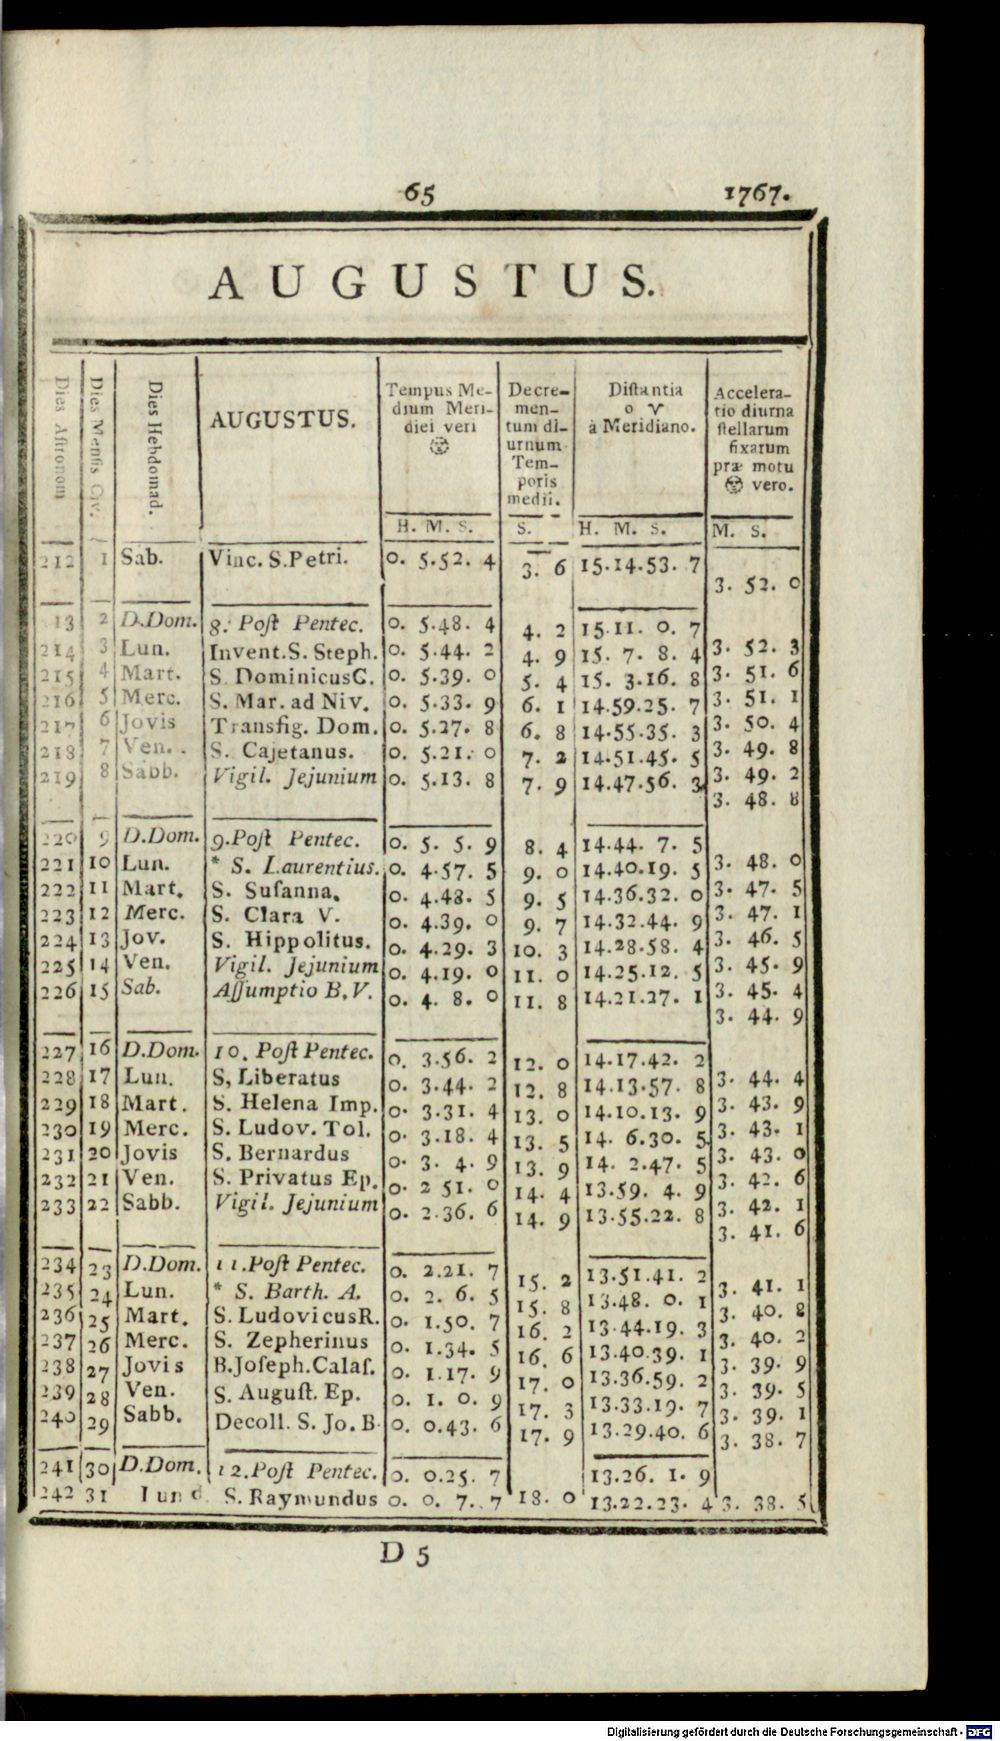 65 1767.
AUGUSTUS.
Dies Astronom
Dies Mensis Civ.
Dies Hebdomad.
AUGUSTUS.
Tempus Me-
dium Meri-
diei veri
☉
Decre-
men-
tum di-
urnum
Tem-
poris
medii.
Distantia
o ♈
à Meridiano.
Accelera-
tio diurna
stellarum
fixarum
præ motu
☉ vero.
H. M. S. S. H. M. S. M. S.
212 1 Sab. Vinc. S.Petri. 0. 5.52. 4 3. 6 15.14.53. 7 3. 52. 0
13 2 D.Dom. 8. Poſt Pentec. 0. 5.48. 4 4. 2 15.11. 0. 7 3. 52. 3
214 3 Lun. Invent.S. Steph. 0. 5.44. 2 4. 9 15. 7. 8. 4 3. 51. 6
215 4 Mart. S. DominicusC. 0. 5.39. 0 5. 4 15. 3.16. 8 3. 51. 1
216 5 Merc. S. Mar. ad Niv. 0. 5.33. 9 6. 1 14.59.25. 7 3. 50. 4
217 6 Jovis Transfig. Dom. 0. 5.27. 8 6. 8 14.55.35. 3 3. 49. 8
218 7 Ven. . S. Cajetanus. 0. 5.21. 0 7. 2 14.51.45. 5 3. 49. 2
219 8 Sabb. Vigil. Jejunium 0. 5.13. 8 7. 9 14.47.56. 3 3. 48. 8
220 9 D.Dom. 9.Poſt Pentec. 0. 5. 5. 9 8. 4 14.44. 7. 5 3. 48. 0
221 10 Lun. * S. Laurentius. 0. 4.57. 5 9. 0 14.40.19. 5 3. 47. 5
222 11 Mart. S. Suſanna. 0. 4.48. 5 9. 5 14.36.32. 0 3. 47. 1
223 12 Merc. S. Clara V. 0. 4.39. 0 9. 7 14.32.44. 9 3. 46. 5
224 13 Jov. S. Hippolitus. 0. 4.29. 3 10. 3 14.28.58. 4 3. 45. 9
225 14 Ven. Vigil. Jejunium 0. 4.19. 0 11. 0 14.25.12. 5 3. 45. 4
226 15 Sab. Aſſumptio B.V. 0. 4. 8. 0 11. 8 14.21.27. 1 3. 44. 9
227 16 D.Dom. 10. Poſt Pentec. 0. 3.56. 2 12. 0 14.17.42. 2 3. 44. 4
228 17 Lun. S, Liberatus 0. 3.44. 2 12. 8 14.13.57. 8 3. 43. 9
229 18 Mart. S. Helena Imp. 0. 3.31. 4 13. 0 14.10.13. 9 3. 43. 1
230 19 Merc. S. Ludov. Tol. 0. 3.18. 4 13. 5 14. 6.30. 5 3. 43. 0
231 20 Jovis S. Bernardus 0. 3. 4. 9 13. 9 14. 2.47. 5 3. 42. 6
232 21 Ven. S. Privatus Ep. 0. 2 51. 0 14. 4 13.59. 4. 9 3. 42. 1
233 22 Sabb. Vigil. Jejunium 0. 2.36. 6 14. 9 13.55.22. 8 3. 41. 6
234 23 D.Dom. 11.Poſt Pentec. 0. 2.21. 7 15. 2 13.51.41. 2 3. 41. 1
235 24 Lun. * S. Barth. A. 0. 2. 6. 5 15. 8 13.48. 0. 1 3. 40. 8
236 25 Mart. S. LudovicusR. 0. 1.50. 7 16. 2 13.44.19. 3 3. 40. 2
237 26 Merc. S. Zepherinus 0. 1.34. 5 16. 6 13.40.39. 1 3. 39. 9
238 27 Jovis B.Joſeph.Calaſ. 0. 1.17. 9 17. 0 13.36.59. 2 3. 39. 5
239 28 Ven. S. Auguſt. Ep. 0. 1. 0. 9 17. 3 13.33.19. 7 3. 39. 1
240 29 Sabb. Decoll. S. Jo. B. 0. 0.43. 6 17. 9 13.29.40. 6 3. 38. 7
241 30 D.Dom. 12.Poſt Pentec. 0. 0.25. 7 13.26. 1. 9
242 31 S. Raymundus 0. 0. 7. 7 18. 0 13.22.23. 4 3. 38. 5
D 5
Digitalisierung gefördert durch die Deutsche Forschungsgemeinschaft - DFG